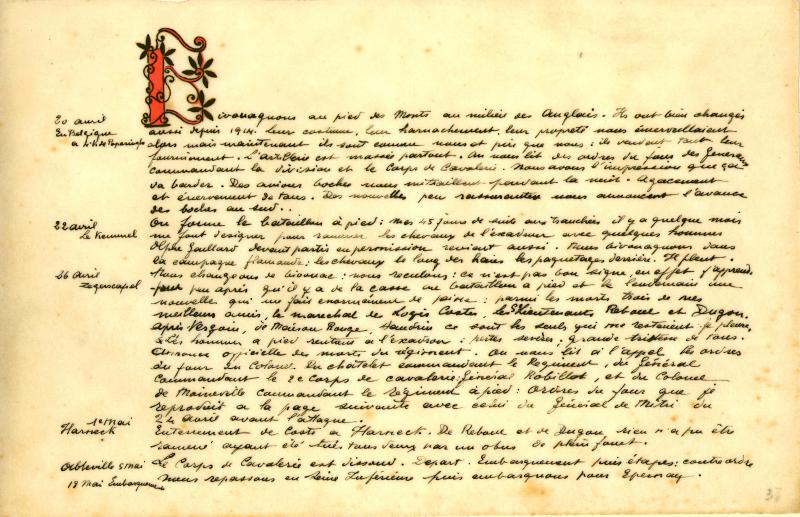 20 avril
En Belgique
Bivouaquons au pied des Monts au milieu des Anglais. Ils ont bien changés
aussi depuis 1914. leur costume, leur harnachement, leur propreté nous émerveillaient
alors mais maintenant ils sont comme nous et pire que nous : ils vendent tout leur
fourniment. L'artillerie est massée partout. On nous lit des ordres du jour des Généraux
commandant la division et le Corps de Cavalerie. Nous avons l'impression que ça
va barder. Des avions boches nous mitraillent pendant la nuit. Agacement
et énervement de tous. Des nouvelles peu rassurantes nous annoncent l'avance
des boches au sud..
22 avril
Le Kemmel
On forme le bataillon à pied : mes 45 jours de suite aux tranchées il y a quelque mois
me font designer pour ramener les chevaux de l'escadron avec quelques hommes
Gaillard devant partir en permission revient aussi. Nous bivouaquons dans
la campagne flamande : les chevaux le long des haies les paquetages derrière. Il pleut.
26 avril
Zegerscapel
Nous changeons de bivouac : nous reculons : ce n'est pas bon signe, en effet j'apprends
peu après qu'il y a de la casse au bataillon à pied et le lendemain une
nouvelle qui me fait enormément de peine : parmi les morts trois de mes
meilleurs amis, le marechal de Logis Coste, les Slieutenants Reboul et Dugon.
après Vergoin, de Maison Rouge, ce sont les seuls qui me restaient je pleure.
Les hommes à pied rentrent à l'escadron : pertes sevères, grande tristesse de tous.
Annonce officielle des morts du régiment. On nous lit à l'appel les ordres
du jour du Colonel Du châtelet commandant le Regiment, du Général
commandant le 2e Corps de cavalerie : Général Robillot, et du Colonel
de Moineville commandant le régiment à pied : Ordres du jour que je
reproduit à la page suivante avec celui du Général de Mitri du
24 avril avant l'attaque.
1er Mai
Harneck
Enterrement de Coste à Harneck. De Reboul et de Dugon rien n'a pu être
ramené ayant été tués tous deux par un obus de plein fouet.
Abbeville 5 mai
Le Corps de Cavalerie est dissous. Depart. Embarquement puis étapes : contre ordre
18 Mai Embarquement
Nous repassons en Seine Inférieure puis embarquons pour Epernay.